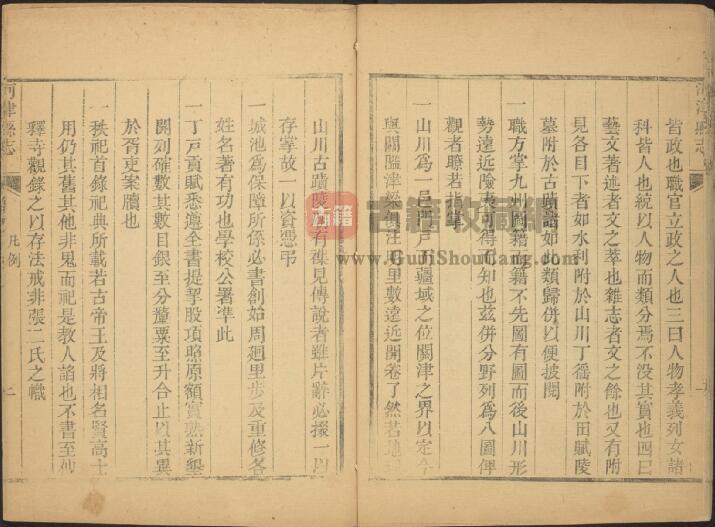 皆政也職官立政之人也三曰人物孝義列女諸
科皆人也統以人物而類分焉不没其實也四曰
藝文著述者文之萃也雜志者文之餘也又有附
見各目下者如水利附於山川丁徭附於田賦陵
墓附於古蹟諸如此類歸併以便披閱
一職方掌九州圖籍而籍不先圖有圖而後山川形
勢遠近險夷可得而知也兹併分野列爲八圖俾
觀者瞭若指掌
一山川爲一邑門戸而疆域之位關津之界以定今
與關隘津梁俱注明里數遠近開卷了然若
山川古蹟陵墓有雜見傳說者雖片辭必掇一以
存掌故一以資憑弔
一城池爲保障所係必書創始周廻里步及重修各
姓名著有功也學校公署凖此
一丁戸貢賦悉遵全書提挈股項照原額實熟新墾
開列確數其數目銀至分釐粟至升合止以其異
於胥吏案牘也
一秩祀首錄祀典所載若古帝王及將相名賢高士
用仍其舊其他非鬼而祀是教人諂也不書至仙
釋寺觀錄之以存法戒非張二氏之幟
河津縣志
凡例
一
古籍
古籍收藏網
www.GujiShouCang.com